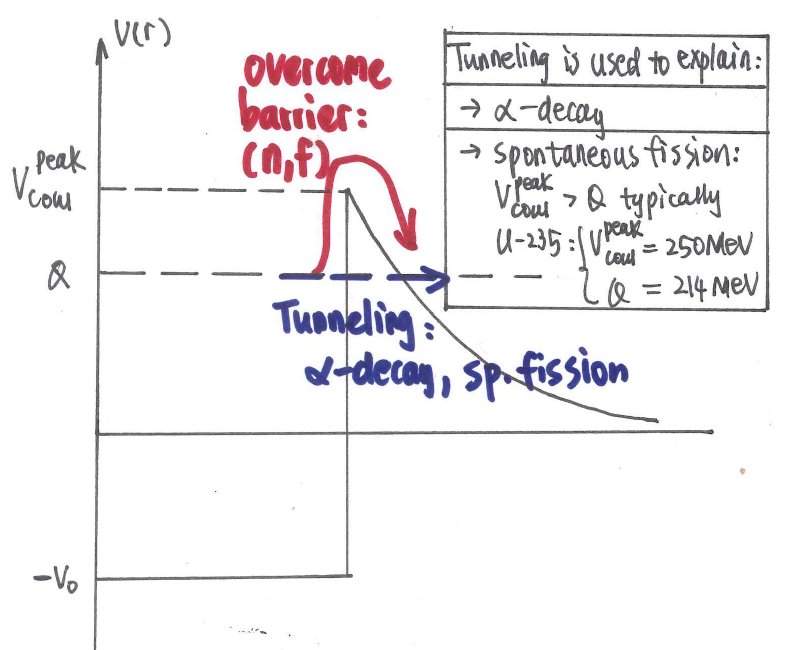 V(r)
overcome
barrier:
(n,f)
V_coul^peak
Q
Tunneling:
α-decay, sp. fission
-V₀
Tunneling is used to explain:
→ α-decay
→ spontaneous fission:
V_coul^peak > Q typically
U-235: { V_coul^peak = 250 MeV
Q = 214 MeV